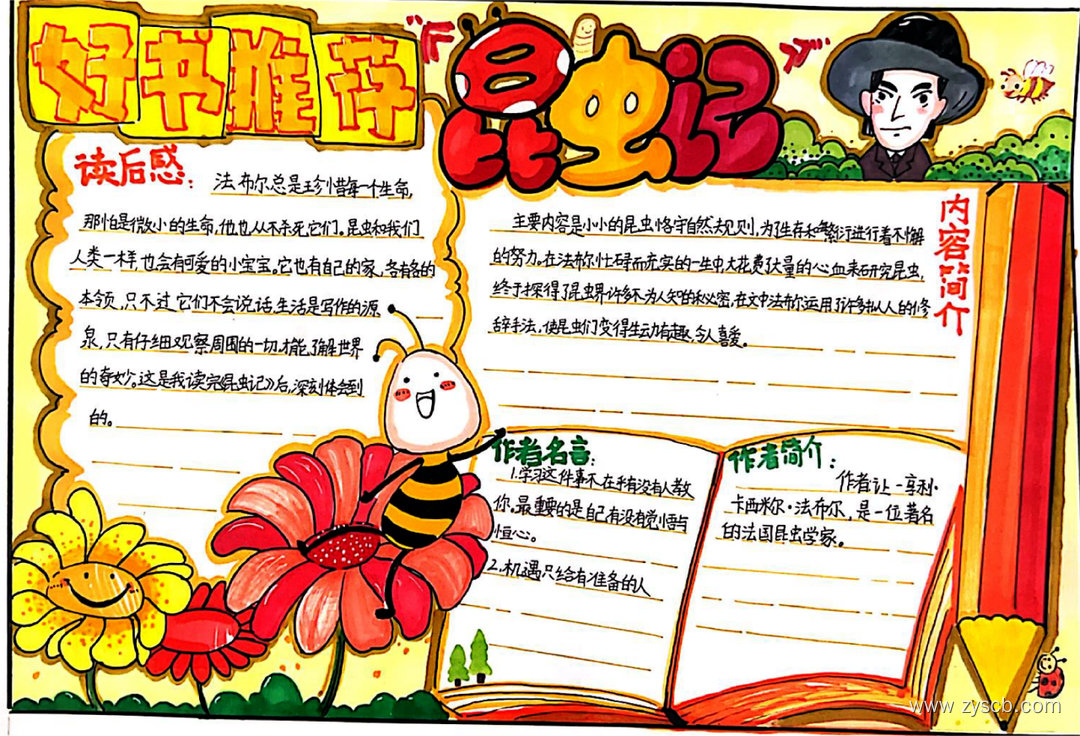 好书推荐
昆虫记
读后感：
法布尔总是珍惜每一个生命，
那怕是微小的生命，他也从不杀死它们。昆虫和我们
人类一样，也会有可爱的小宝宝。它也有自己的家，各有各的
本领，只不过它们不会说话，生活是写作的源
泉，只有仔细观察周围的一切，才能了解世界
的奇妙。这是我读完昆虫记》后，深刻体会到
的。
内容简介
主要内容是小小的昆虫恪守自然规则，为了生存和繁衍进行着不懈
的努力。在法布尔忙碌而充实的一生中，大花费了大量的心血来研究昆虫，
终于探得了昆虫界许多不为人知的秘密，在文中法布尔运用了许多拟人的修
辞手法，使昆虫们变得生动有趣，令人喜爱。
作者名言：
1.学习这件事不在乎有没有人教
你。最重要的是自己有没有觉悟与
恒心。
2.机遇只给有准备的人
作者简介：
作者让-亨利·
卡西米尔·法布尔，是一位著名
的法国昆虫学家。
www.zyscb.com